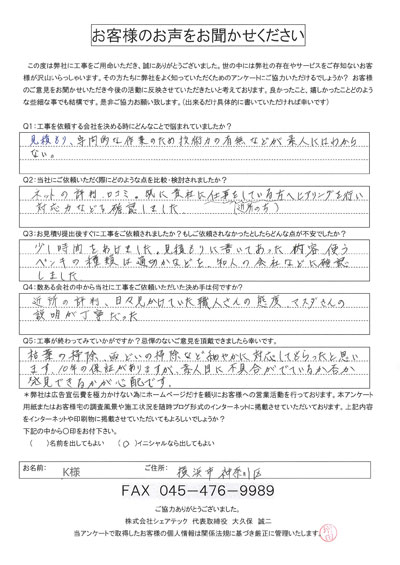 お客様のお声をお聞かせください
この度は弊社に工事をご用命いただき、誠にありがとうございました。世の中には弊社の存在やサービスをご存知ないお客
様が沢山いらっしゃいます。その方たちに弊社をよく知っていただくためのアンケートにご協力いただけるでしょうか？ お客様
のご意見をお聞かせいただき今後の活動に反映させていただきたいと考えております。良かったこと、嬉しかったことどのよう
な些細な事でも結構です。是非ご協力お願い致します。（出来るだけ具体的に書いていただければ幸いです）
Q1：工事を依頼する会社を決める時にどんなことで悩まれていましたか？
見積もり、専門的な作業のため技術力の有無などが素人にはわから
ない。
Q2：当社にご依頼いただく際にどのような点を比較・検討されましたか？
ネットの評判、口コミ。既に貴社に仕事をしている方へヒアリングを行い
対応力などを確認しました。（近所の方）
Q3：お見積り提出後すぐに工事をご依頼されましたか？もしご依頼されなかったとしたらどんな点が不安でしたか？
少し時間をあけました。見積もりに書いてあった内容、使う
ペンキの種類は適切かなどを、知人の会社などに確認
しました。
Q4：数ある会社の中から当社に工事をご依頼いただいた決め手は何ですか？
近所の評判、日々見かけていた職人さんの態度、マスダさんの
説明が丁寧だった
Q5：工事が終わってみていかがですか？忌憚のないご意見を頂戴できましたら幸いです。
枯葉の掃除、雨どいの掃除など細やかに対応してもらったと思い
ます。10年の保証がありますが、素人目に不具合がでているか否か
発見できるかが心配です。
＊弊社は広告宣伝費を極力かけない為にホームページだけを頼りにお客様への営業活動を行っております。本アンケート
用紙またはお客様宅の調査風景や施工状況を随時ブログ形式のインターネットに掲載させていただいております。上記内容
をインターネットや印刷物に掲載させていただいてもよろしいでしょうか？
下記の中から○印をお付下さい。
（　）名前を出してもよい （○）イニシャルなら出してもよい
お名前： K様 ご住所： 横浜市神奈川区
FAX 045-476-9989
ご協力ありがとうございました。
株式会社シェアテック 代表取締役 大久保 誠二
当アンケートで取得したお客様の個人情報は関係法規に基づき厳正に管理いたします。